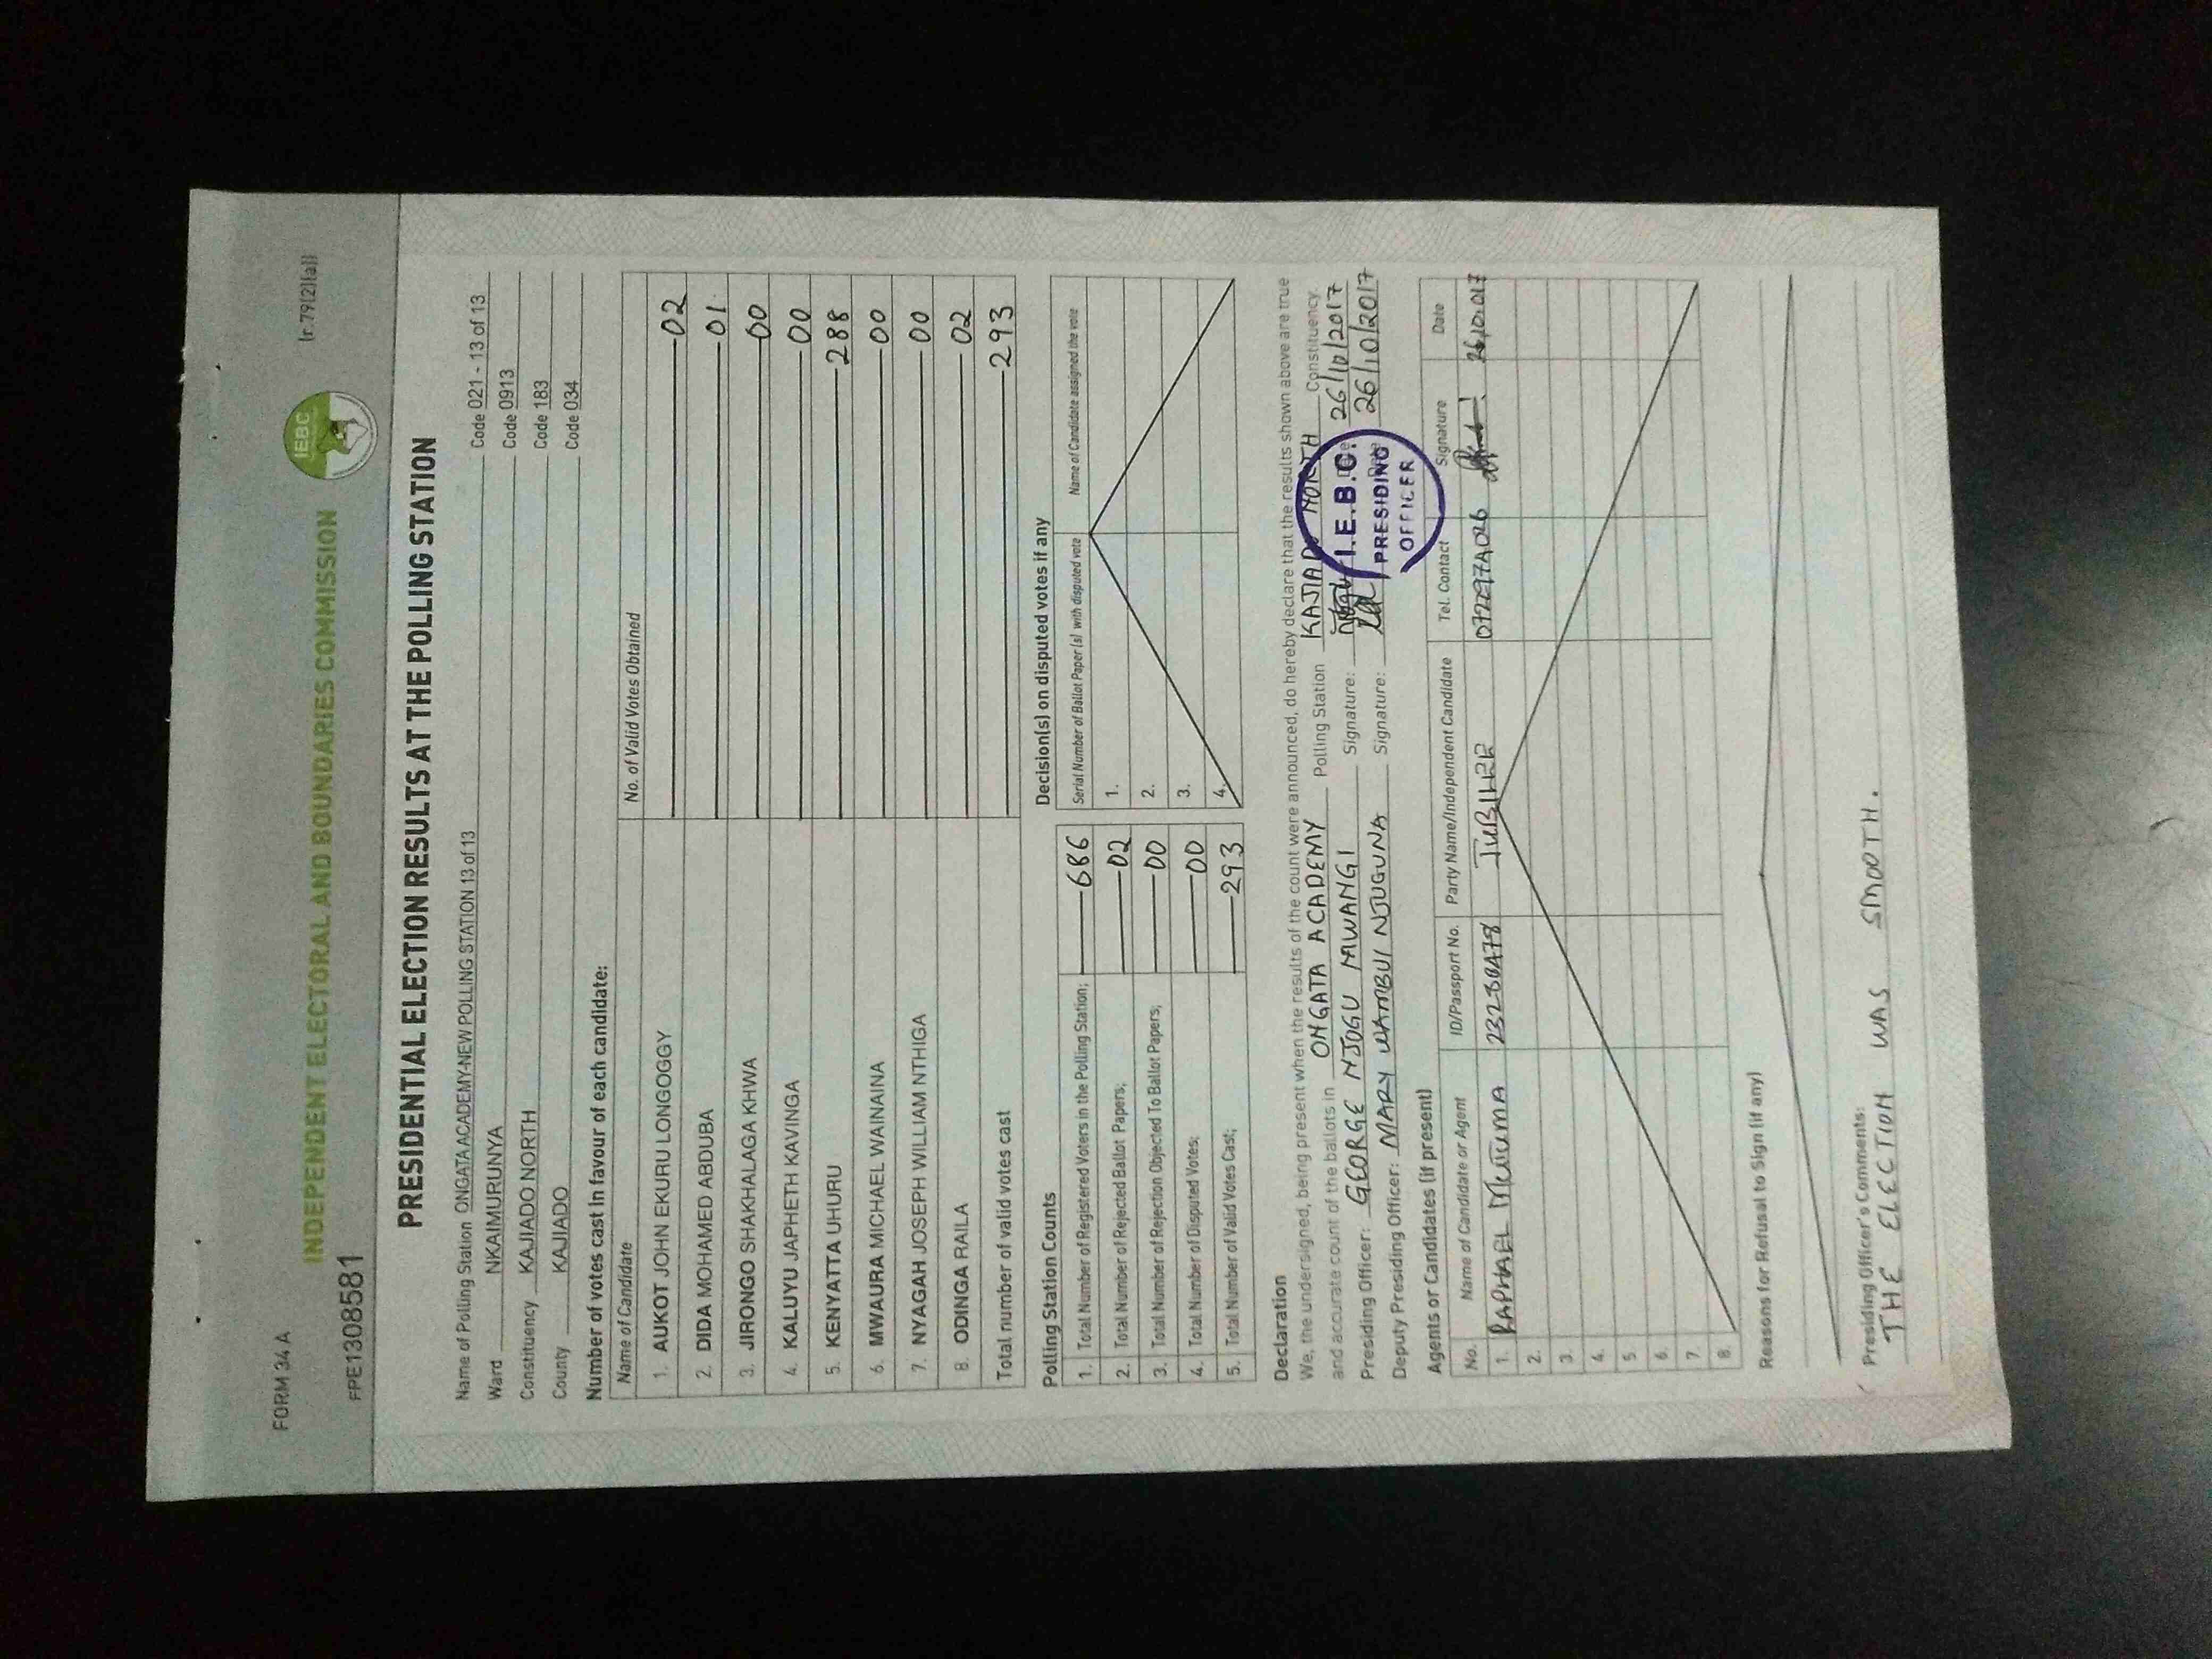 FORM 34 A
(r.79(2)(a))
INDEPENDENT ELECTORAL AND BOUNDARIES COMMISSION
IEBC
FPE1308581
PRESIDENTIAL ELECTION RESULTS AT THE POLLING STATION
Name of Polling Station ONGATA ACADEMY-NEW POLLING STATION 13 of 13 Code 021 - 13 of 13
Ward NKAIMURUNYA Code 0913
Constituency KAJIADO NORTH Code 183
County KAJIADO Code 034
Number of votes cast in favour of each candidate:
Name of Candidate No. of Valid Votes Obtained
1. AUKOT JOHN EKURU LONGOGGY 02
2. DIDA MOHAMED ABDUBA 01
3. JIRONGO SHAKHALAGA KHWA 00
4. KALUYU JAPHETH KAVINGA 00
5. KENYATTA UHURU 288
6. MWAURA MICHAEL WAINAINA 00
7. NYAGAH JOSEPH WILLIAM NTHIGA 00
8. ODINGA RAILA 02
Total number of valid votes cast 293
Polling Station Counts
1. Total Number of Registered Voters in the Polling Station; 686
2. Total Number of Rejected Ballot Papers; 02
3. Total Number of Rejection Objected To Ballot Papers; 00
4. Total Number of Disputed Votes; 00
5. Total Number of Valid Votes Cast; 293
Decision(s) on disputed votes if any
Serial Number of Ballot Paper (s) with disputed vote Name of Candidate assigned the vote
1.
2.
3.
4.
Declaration
We, the undersigned, being present when the results of the count were announced, do hereby declare that the results shown above are true
and accurate count of the ballots in ONGATA ACADEMY Polling Station KAJIADO NORTH Constituency.
Presiding Officer: GEORGE NJOGU MWANGI Signature: 26/10/2017
Deputy Presiding Officer: MARY WAMBUI NJUGUNA Signature: 26/10/2017
I.E.B.C.
PRESIDING
OFFICER
Agents or Candidates (if present)
No. Name of Candidate or Agent ID/Passport No. Party Name/Independent Candidate Tel. Contact Signature Date
1. RAPHAEL JUBILEE
2.
3.
4.
5.
6.
7.
8.
Reasons for Refusal to Sign (if any)
Presiding Officer's Comments:
THE ELECTION WAS SMOOTH.